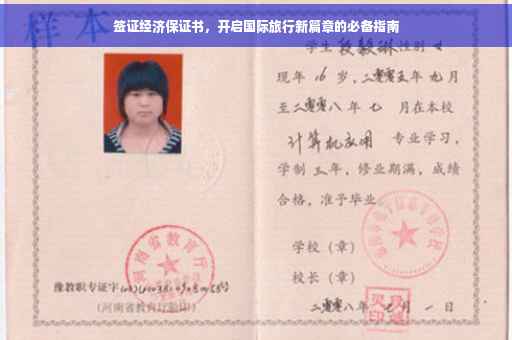 签证经济保证书，开启国际旅行新篇章的必备指南
样本
学生 段毅琳 性别 女
现年 16 岁，二零零五年 九 月
至二零零八 年 七 月在本校
计算机应用 专业学习，
学制 三 年，修业期满，成绩
合格，准予毕业
学校（章）
校长（章）
二零零八年 月 一 日
河南省教育厅
豫教职专证字
（河南省教育厅验印）